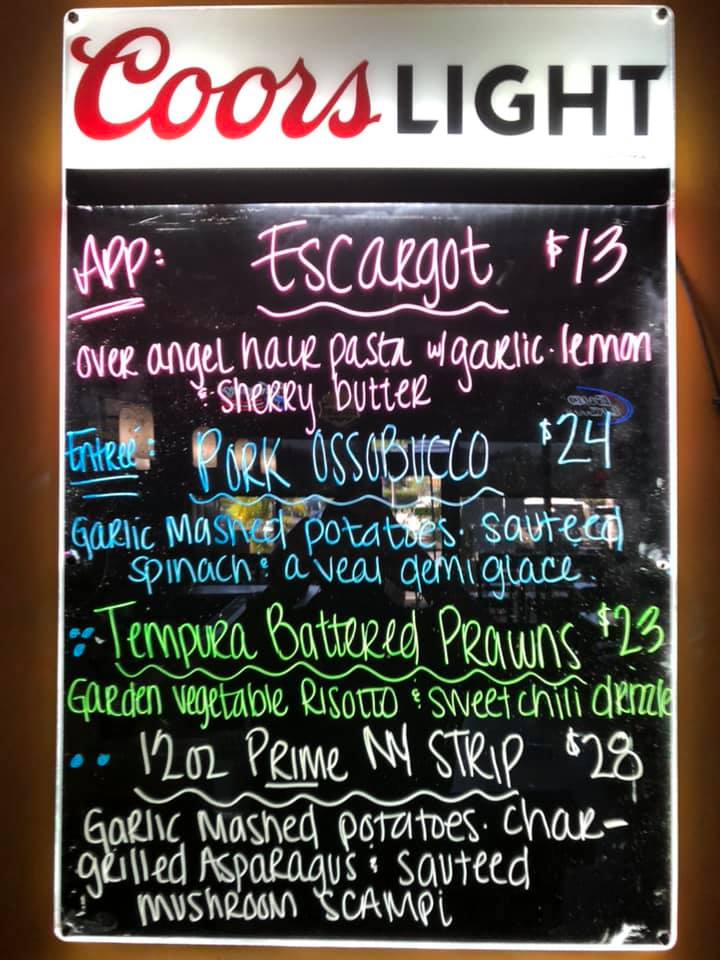 Coors LIGHT
APP: Escargot $13
over angel hair pasta w/ garlic. lemon
& sherry butter
Entreé: PORK OSSOBUCCO $24
Garlic Mashed potatoes. sauteed
spinach & a veal demi glace.
Tempura Battered Prawns $23
Garden vegetable Risotto & sweet chili drizzle
12oz PRIME NY STRIP $28
Garlic Mashed potatoes. char-
grilled Asparagus & sauteed
mushroom SCAMPi